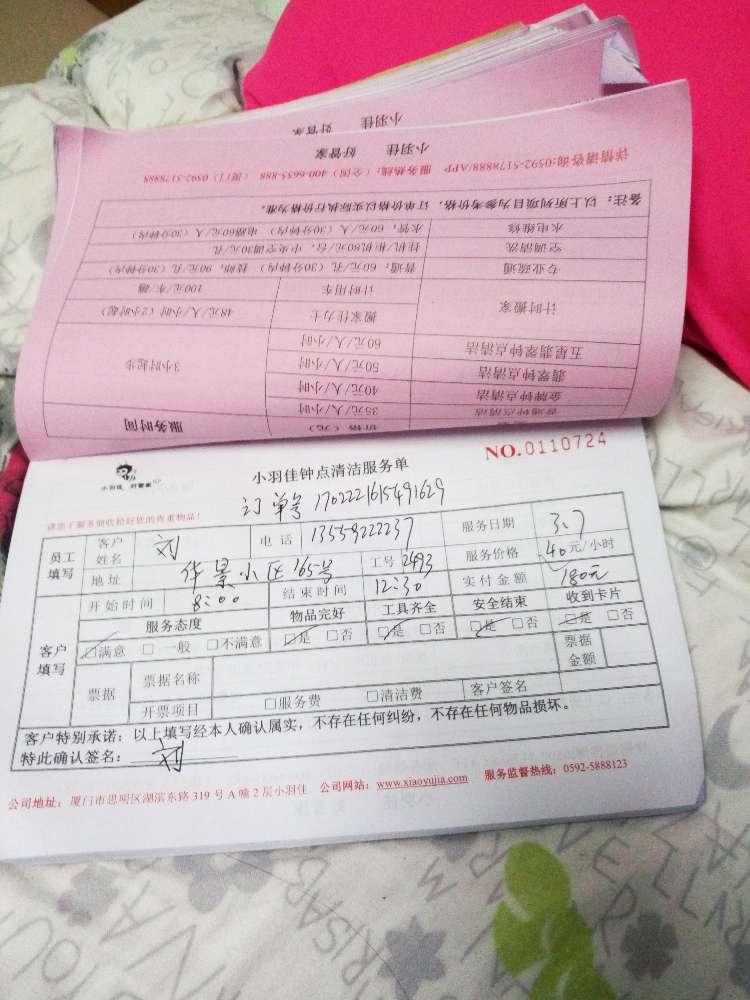 小羽佳 好管家
小羽佳 好管家
详情请咨询:0592-5178888/APP 服务热线:（全国）400-6655-888（厦门）0592-5178888
备注：以上所列项目为参考价格，订单价格以实际执行价格为准。
水电维修 水管，60元/人（30分钟内） 电路60元/人（30分钟内）
空调清洗 挂机/柜机80元/台，中央空调30元/孔
专业疏通 普通：60元/孔（30分钟内） 技师，90元/孔（30分钟内）
计时搬家 计时用车 100元/车/趟
搬家佳力士 48元/人/小时（2小时起）
五星翡翠钟点清洁 60元/人/小时 3小时起步
翡翠钟点清洁 50元/人/小时
金牌钟点清洁 40元/人/小时
普通钟点清洁 35元/人/小时
价格（元） 服务时间
小羽佳 好管家
小羽佳钟点清洁服务单 NO.0110724
订单号 1702221615491629
请您于服务前收拾好您的贵重物品！
员工填写 客户姓名 刘 电话 13559222237 服务日期 3.7
地址 华景小区165号 工号 2493 服务价格 40元/小时
开始时间 8:00 结束时间 12:30 实付金额 180元
客户填写 服务态度 物品完好 工具齐全 安全结束 收到卡片
☑满意 □一般 □不满意 ☑是 □否 ☑是 □否 ☑是 □否 ☑是 □否
票据 票据名称 票据金额
开票项目 □服务费 □清洁费 客户签名
客户特别承诺：以上填写经本人确认属实，不存在任何纠纷，不存在任何物品损坏。
特此确认签名：刘
公司地址：厦门市思明区湖滨东路319号A幢2层小羽佳 公司网站：www.xiaoyujia.com 服务监督热线：0592-5888123